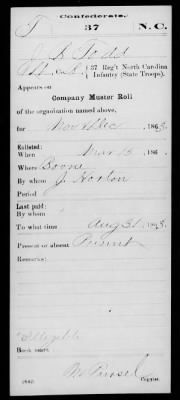 Confederate.
T 37 N.C.
J B Todd
37 Reg't North Carolina
Infantry (State Troops).
Appears on
Company Muster Roll
of the organization named above,
for Nov & Dec, 186
Enlisted:
When Mar 15, 186
Where Boone
By whom J. Horton
Period
Last paid:
By whom
To what time Aug 31, 186
Present or absent Present
Remarks:
Book mark:
Copyist.